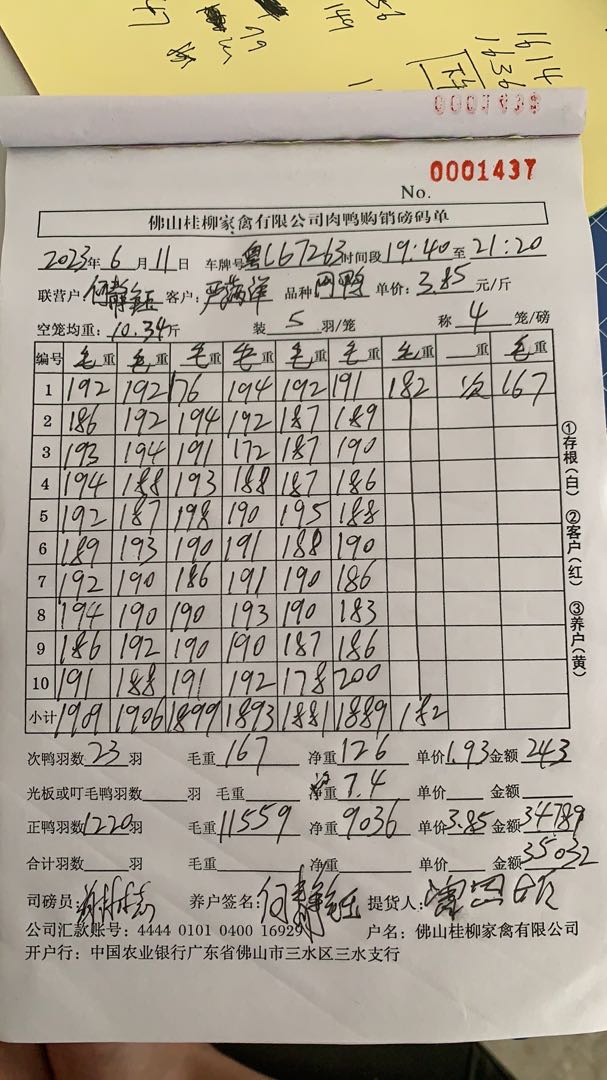 149
56
1614
1636
0001438
0001437
No.
佛山桂柳家禽有限公司肉鸭购销磅码单
2023年 6 月 11 日 车牌号 粤L67263 时间段 19:40 至 21:20
联营户 何静钰 客户: 品种 网鸭 单价: 3.85 元/斤
空笼均重: 10.34 斤 装 5 羽/笼 称 4 笼/磅
编号 毛重 毛重 毛重 毛重 毛重 毛重 毛重 重 毛重
1 192 192 176 194 192 191 182 次 167
2 186 192 194 192 187 189
3 193 194 191 172 187 190
4 194 188 193 188 187 186
5 192 187 198 190 195 188
6 189 193 190 191 188 190
7 192 190 186 191 190 186
8 194 190 190 193 190 183
9 186 192 190 190 187 186
10 191 188 191 192 178 200
小计 1909 1906 1899 1893 1881 1889 182
①存根(白) ②客户(红) ③养户(黄)
次鸭羽数 23 羽 毛重 167 净重 126 单价 1.93 金额 243
光板或叮毛鸭羽数 羽 毛重 净重 7.4 单价 金额
正鸭羽数 1220 羽 毛重 11559 净重 9036 单价 3.85 金额 34789
合计羽数 羽 毛重 净重 单价 金额 35032
司磅员: 养户签名: 何静钰 提货人:
公司汇款账号: 4444 0101 0400 16929 户名: 佛山桂柳家禽有限公司
开户行: 中国农业银行广东省佛山市三水区三水支行